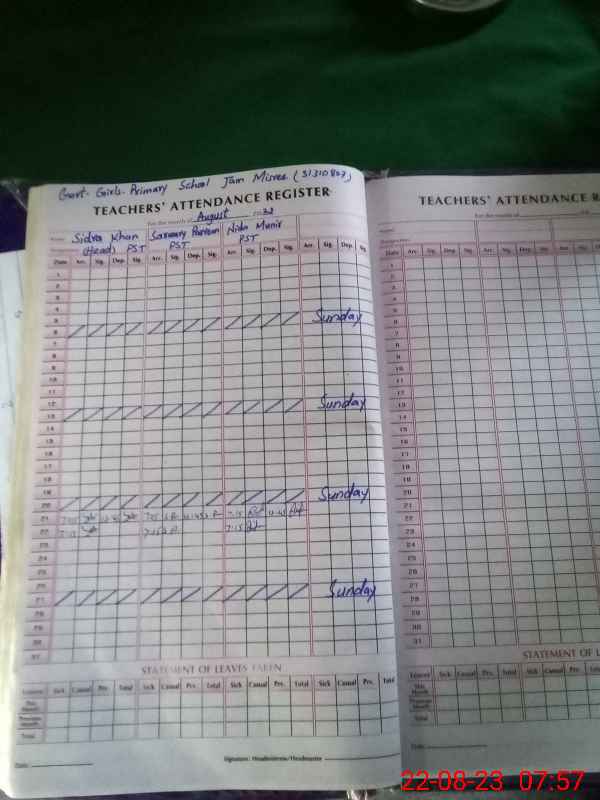 Govt. Girls. Primary School Jam Misree (31310807)
TEACHERS' ATTENDANCE REGISTER
For the month of August
Name Sidra Khan Sarwary Parveen Nida Munir
(Head) PST PST PST
Date Arr. Sig. Dep. Sig. Arr. Sig. Dep. Sig. Arr. Sig. Dep. Sig. Arr. Sig. Dep. Sig.
1
2
3
4
5
6 Sunday
7
8
9
10
11
12
13 Sunday
14
15
16
17
18
19
20 Sunday
21 7:15
22 7:15 7:15 7:15
23
24
25
26
27 Sunday
28
29
30
31
STATEMENT OF LEAVES TAKEN
Leaves Sick Casual Prv. Total Sick Casual Prv. Total Sick Casual Prv. Total Sick Casual Prv. Total
This Month
Previous Month
Total
Date: Signature: Headmistress/Headmaster
TEACHERS' ATTENDANCE R
For the month of
Name
Date Arr. Sig. Dep. Sig. Arr. Sig. Dep. Sig. Arr. Sig.
1
2
3
4
5
6
7
8
9
10
11
12
13
14
15
16
17
18
19
20
21
22
23
24
25
26
27
28
29
30
31
STATEMENT OF L
Leaves Sick Casual Prv. Total Sick Casual Prv. Total Sick Casual
This Month
Previous Month
Total
Date:
22-08-23 07:57